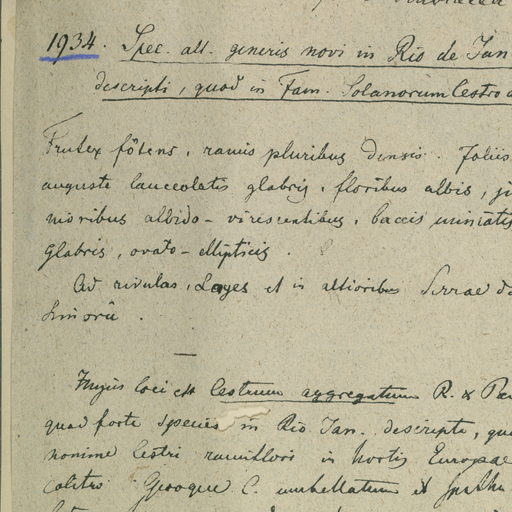 1934. Spec. alt. generis novi in Rio de Jan
descripti, quod in Fam. Solanorum Cestro a
Frutex fôtens, ramis pluribus densis. Foliis
anguste lanceolatis glabris, floribus albis,
nioribus albido-virescentibus, baccis miniatis
glabris, ovato-ellipticis.
Ad rivulos, Lages et in altioribus Serrae d
Huius loci est Cestrum aggregatum R. & Pav
quod forte species in Rio Jan. descripta, qu
nomine Cestri ramiflori in hortis Europae
Quoque C. umbellatum et